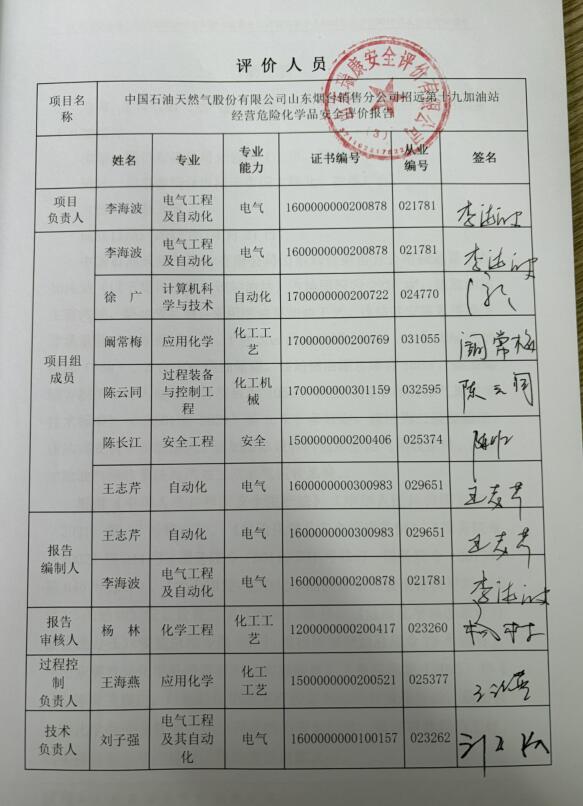 评价人员
项目名称
中国石油天然气股份有限公司山东烟台销售分公司招远第十九加油站
经营危险化学品安全评价报告
姓名 专业 专业能力 证书编号 从业编号 签名
项目负责人 李海波 电气工程及自动化 电气 1600000000200878 021781 李海波
项目组成员
李海波 电气工程及自动化 电气 1600000000200878 021781 李海波
徐广 计算机科学与技术 自动化 1700000000200722 024770
阚常梅 应用化学 化工工艺 1700000000200769 031055 阚常梅
陈云同 过程装备与控制工程 化工机械 1700000000301159 032595 陈云同
陈长江 安全工程 安全 1500000000200406 025374
王志芹 自动化 电气 1600000000300983 029651 王志芹
报告编制人
王志芹 自动化 电气 1600000000300983 029651 王志芹
李海波 电气工程及自动化 电气 1600000000200878 021781 李海波
报告审核人 杨林 化学工程 化工工艺 1200000000200417 023260
过程控制负责人 王海燕 应用化学 化工工艺 1500000000200521 025377
技术负责人 刘子强 电气工程及其自动化 电气 1600000000100157 023262